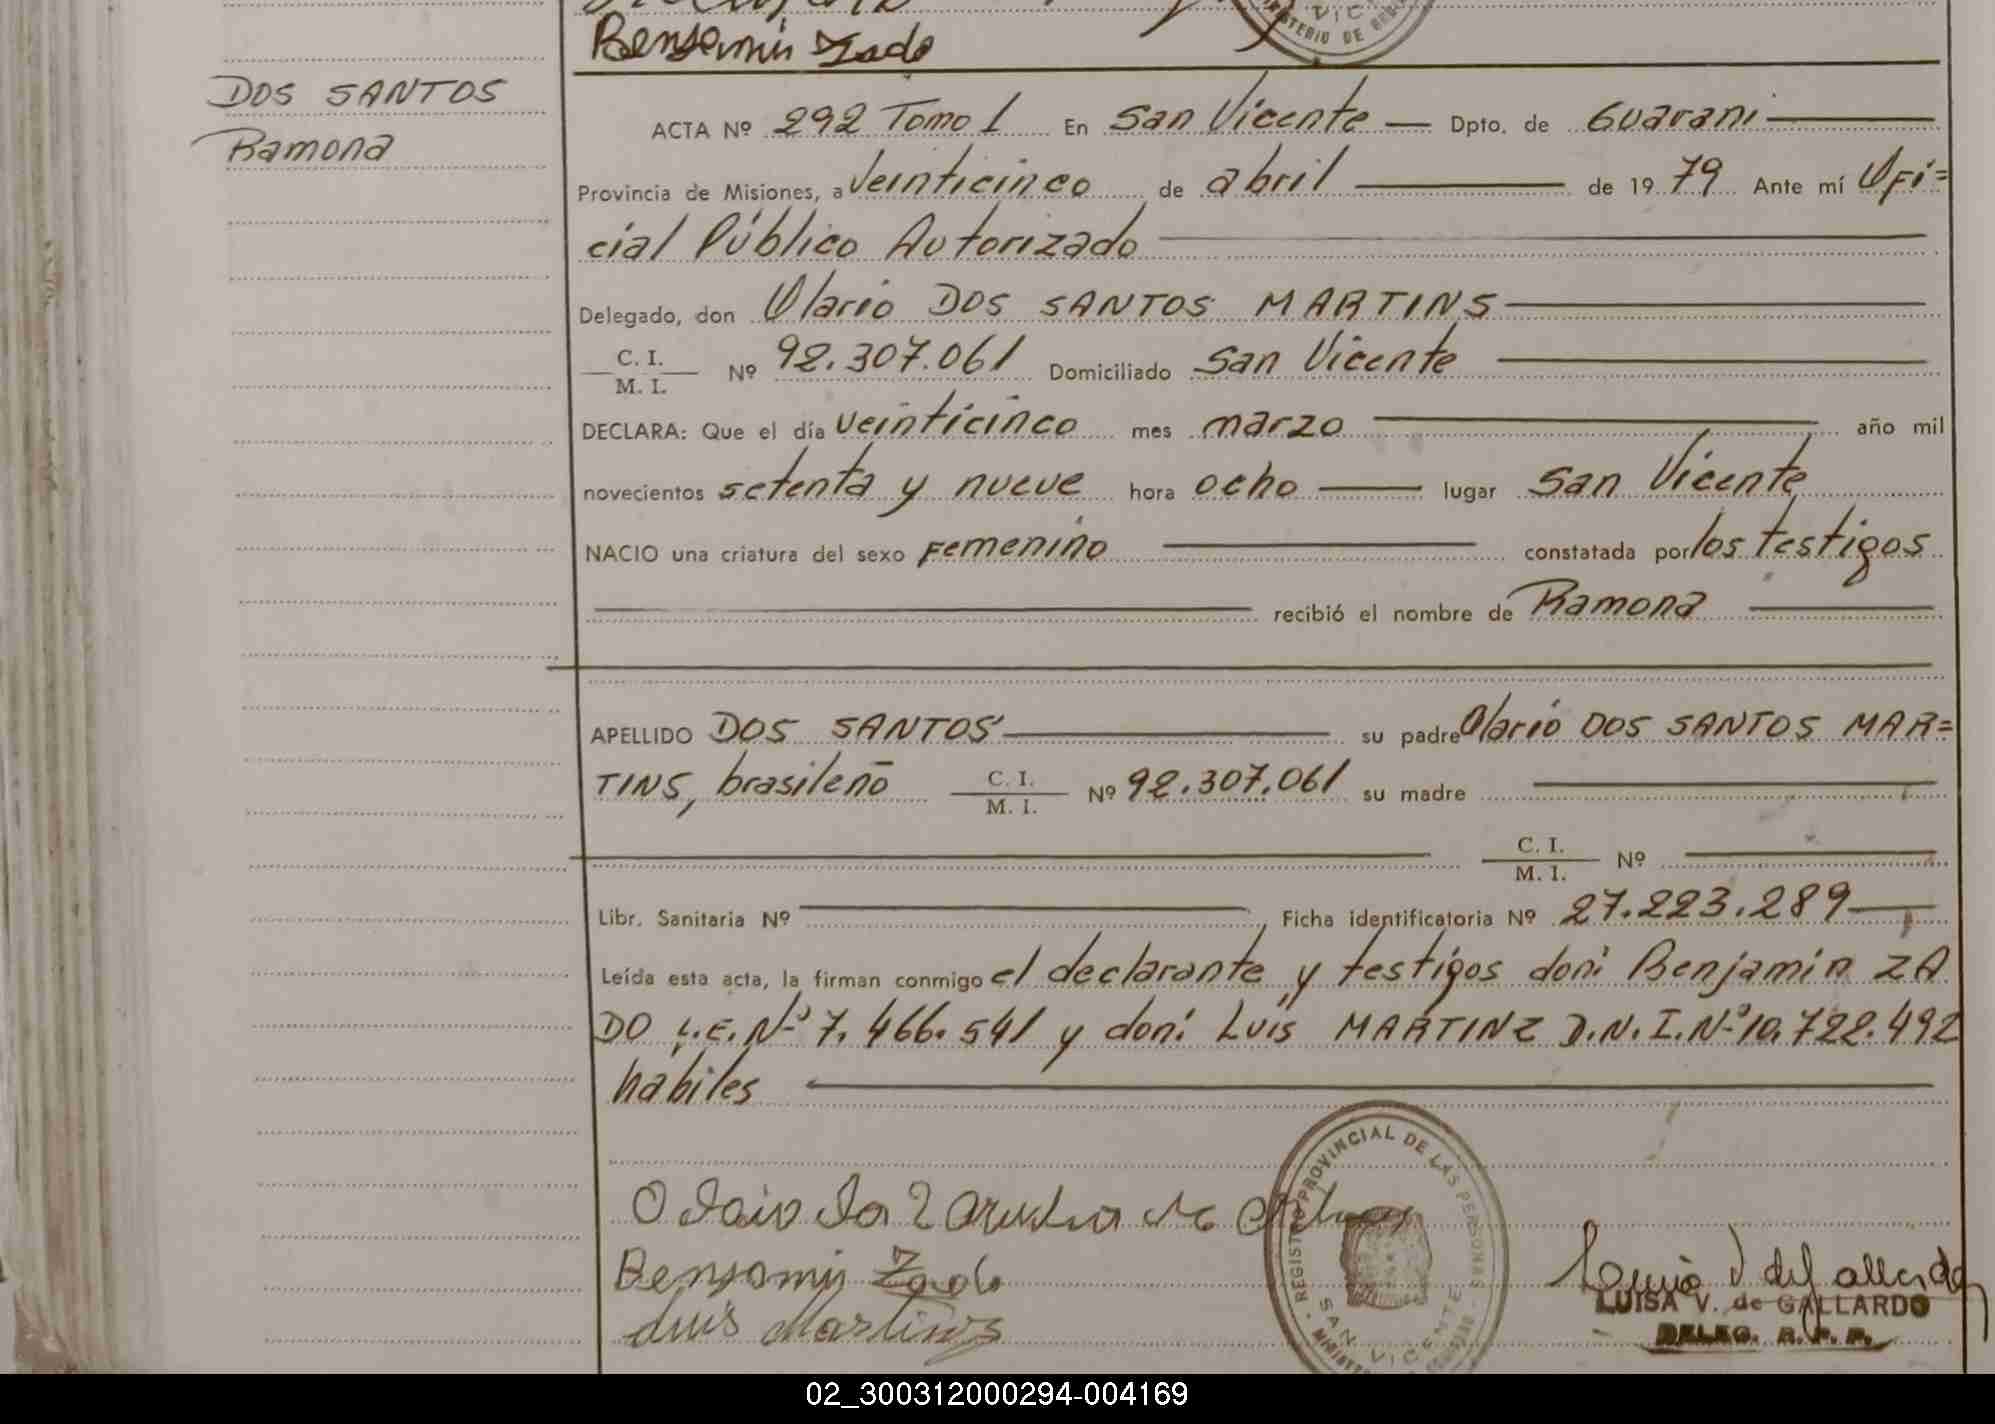 Benjamin Zado
DOS SANTOS
Ramona
ACTA Nº 292 Tomo I En San Vicente — Dpto. de Guarani —
Provincia de Misiones, a veinticinco de abril — de 1979 Ante mí Ofi=
cial Público Autorizado —
Delegado, don Olario DOS SANTOS MARTINS —
C. I.
M. I. Nº 92.307.061 Domiciliado San Vicente —
DECLARA: Que el día veinticinco mes marzo — año mil
novecientos setenta y nueve hora ocho — lugar San Vicente
NACIO una criatura del sexo Femenino — constatada por los testigos
— recibió el nombre de Ramona —
APELLIDO DOS SANTOS — su padre Olario DOS SANTOS MAR=
TINS, brasileño C. I.
M. I. Nº 92.307.061 su madre —
— C. I.
M. I. Nº —
Libr. Sanitaria Nº — Ficha identificatoria Nº 27.223.289 —
Leída esta acta, la firman conmigo el declarante y testigos don: Benjamin ZA
DO L.E.Nº 7.466.541 y don: Luis MARTINZ D.N.I.Nº 10.722.492
habiles —
Benjamin Zado
Luis Martins
REGISTRO PROVINCIAL DE LAS PERSONAS
SAN VICENTE
LUISA V. de GALLARDO
DELEG. R. P. P.
02_300312000294-004169